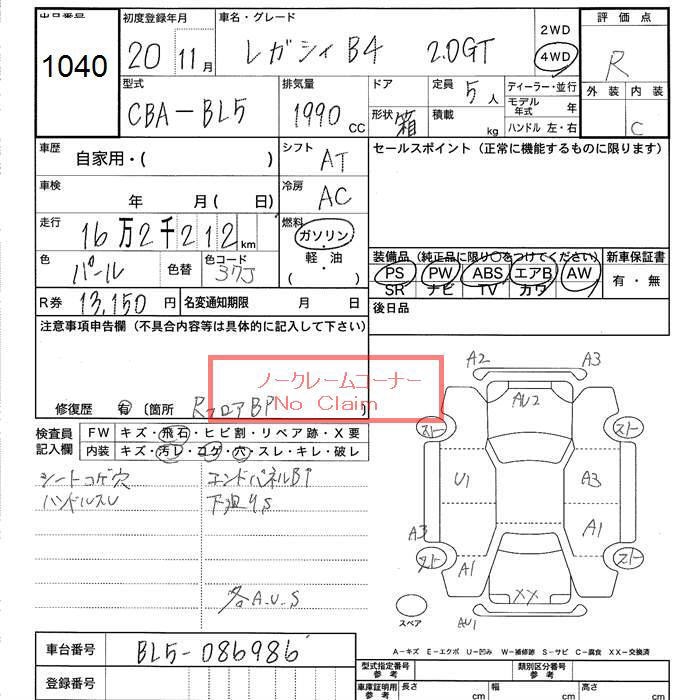 出品番号 初度登録年月 車名・グレード 2WD 評価点
1040 20 11月 レガシィB4 2.0GT 4WD R
型式 排気量 ドア 定員 5人 ディーラー・並行 外装 内装
CBA-BL5 1990 CC 形状 箱 積載 kg モデル年式 年 C
ハンドル 左・右
車歴 自家用・( ) シフト AT セールスポイント (正常に機能するものに限ります)
車検 年 月( 日) 冷房 AC
走行 16万2千212km 燃料 ガソリン・軽・油 ( )
色 パール 色替 色コード 37J
装備品 (純正品に限り○をつけてください) 新車保証書
PS PW ABS エアB AW 有・無
SR ナビ TV カワ
R券 13,150円 名変通知期限 月 日 後日品
注意事項申告欄 (不具合内容等は具体的に記入して下さい)
ノークレームコーナー
No Claim
修復歴 有 〔箇所 RフロアBP 〕
検査員記入欄 FW キズ・飛石・ヒビ割・リペア跡・X要
内装 キズ・汚レ・コゲ・穴・スレ・キレ・破レ
シートコゲ穴 エンドパネルBP
ハンドルスレ 下廻りS
各A.U.S
A2 A3
AU2
スト スト
U1 A3
A3 A1
スト A1 スト
XX
スペア AU1
A-キズ E-エクボ U-凹み W-補修跡 S-サビ C-腐食 XX-交換済
車台番号 BL5-086986
登録番号
型式指定番号 参考 類別区分番号 参考
車庫証明用 参考 長さ cm 幅 cm 高さ cm